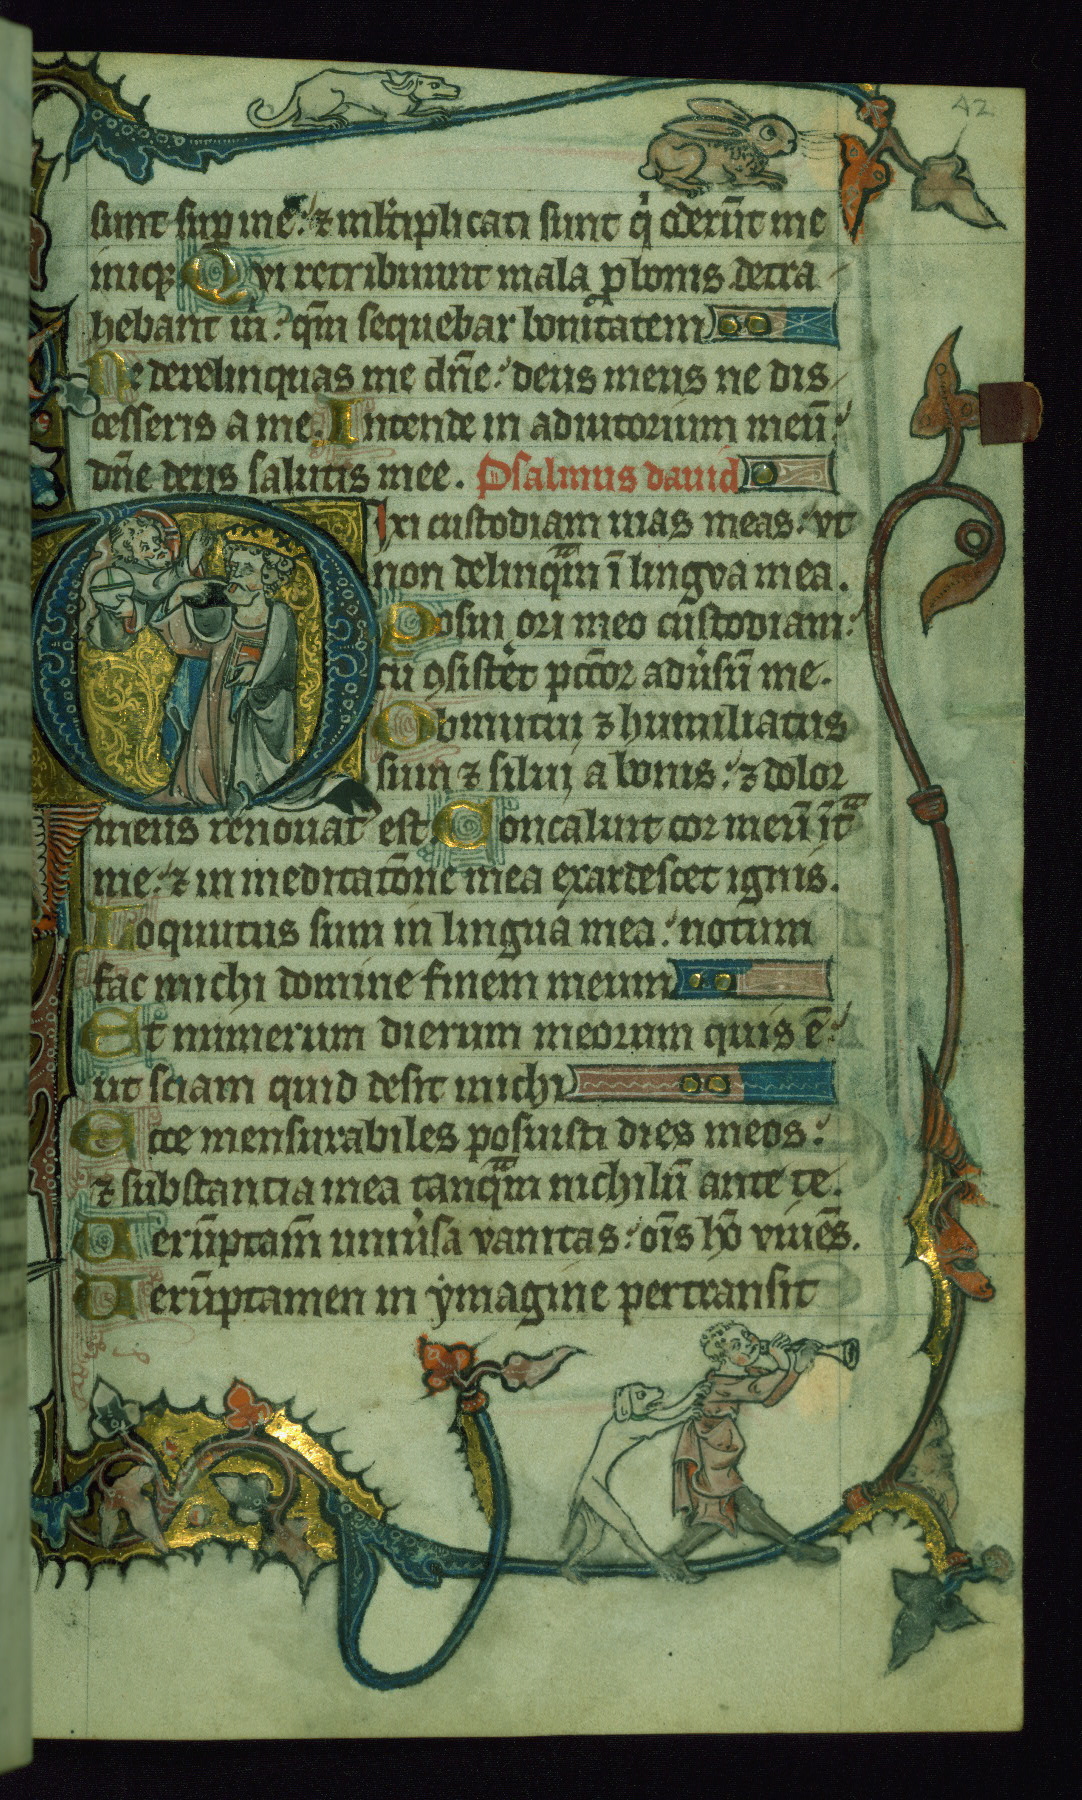 42
sunt sup me: ⁊ mltiplicati sunt q̇ oderūt me
iniq̄. Qvi retribuunt mala ꝓ bonis detra
hebant m̄: qm̄ sequebar bonitatem
Ne derelinquas me dn̄e: deus meus ne dis
cesseris a me. Intende in adiutorium meū:
dn̄e deus salutis mee. Psalmus dauid
Dixi custodiam uias meas: vt
non delinqᵃm ī lingva mea.
Posui ori meo custodiam:
cū ꝯsistet pctōr adūsū me.
Obmutui ⁊ humiliatus
sum ⁊ silui a bonis: ⁊ dolor
meus renouat᾽ est. Concaluit cor meū itᵃ
me: ⁊ in meditatōne mea exardescet ignis.
Loquutus sum in lingua mea: notum
fac michi domine finem meum
Et numerum dierum meorum quis ē:
ut sciam quid desit michi
Ecce mensurabiles posuisti dies meos:
⁊ substantia mea tanqᵃm nichilū ante te.
Uerūptam̄ uniūsa vanitas: om̄s hō viuēs.
Uerūptamen in ẏmagine pertransit